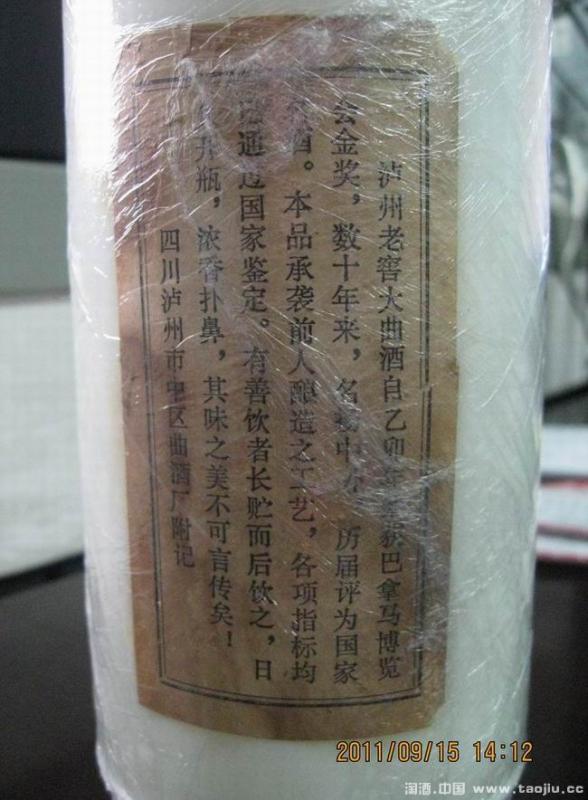 泸州老窖大曲酒自乙卯年获巴拿马博览
会金奖，数十年来，名扬中外，历届评为国家
名酒。本品承袭前人酿造之工艺，各项指标均
通过国家鉴定。有善饮者长贮而后饮之，日
开瓶，浓香扑鼻，其味之美不可言传矣！
四川泸州市中区曲酒厂附记
2011/09/15 14:12
淘酒.中国 www.taojiu.cc